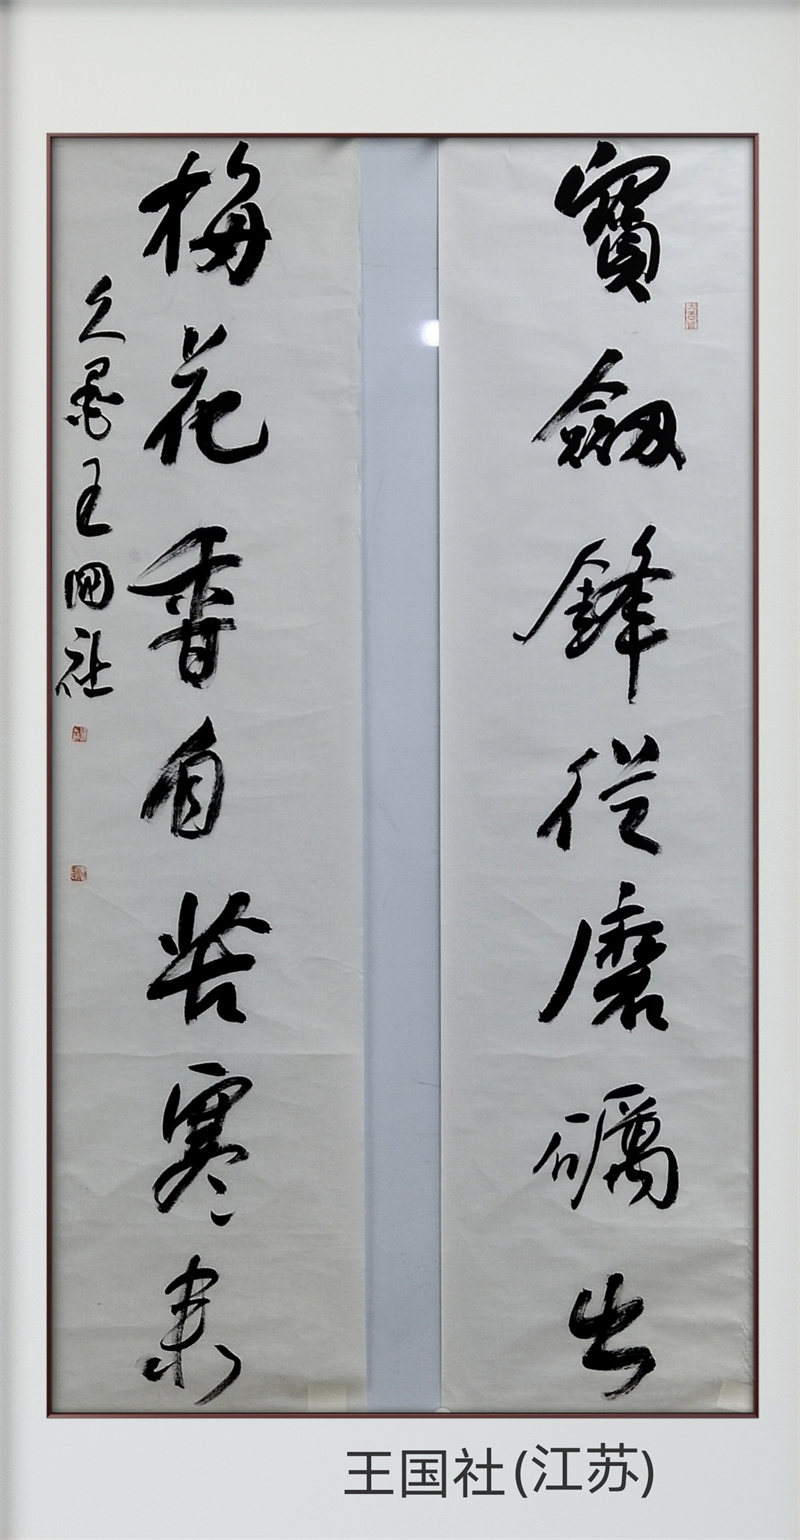 寶劔鋒從磨礪出
梅花香自苦寒来
久墨王國社
王国社(江苏)